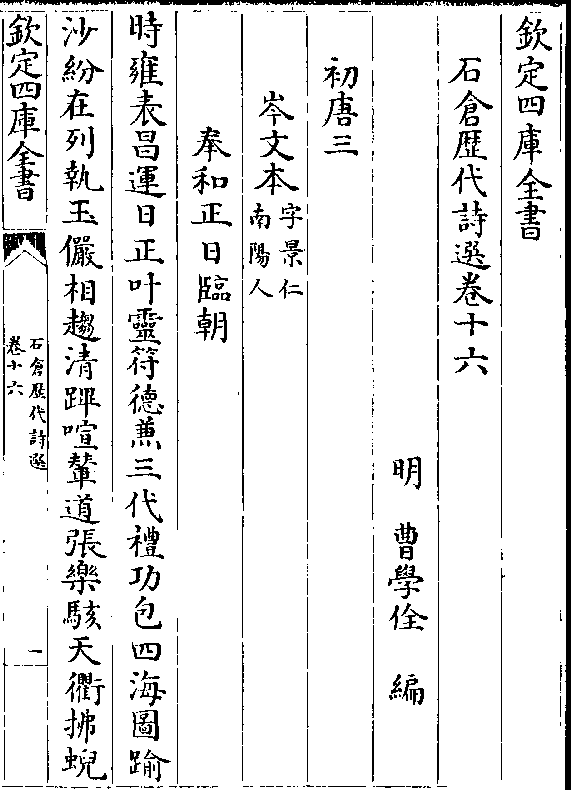 欽定四庫全書
石倉歴代詩選卷十六
明 曹學佺 編
初唐三
岑文本字景仁
南陽人
奉和正日臨朝
時雍表昌運日正叶靈符德兼三代禮功包四海圖踰
沙紛在列執玉儼相趨清蹕喧輦道張樂駭天衢拂蜺
欽定四庫全書
石倉歴代詩選
卷十六
一